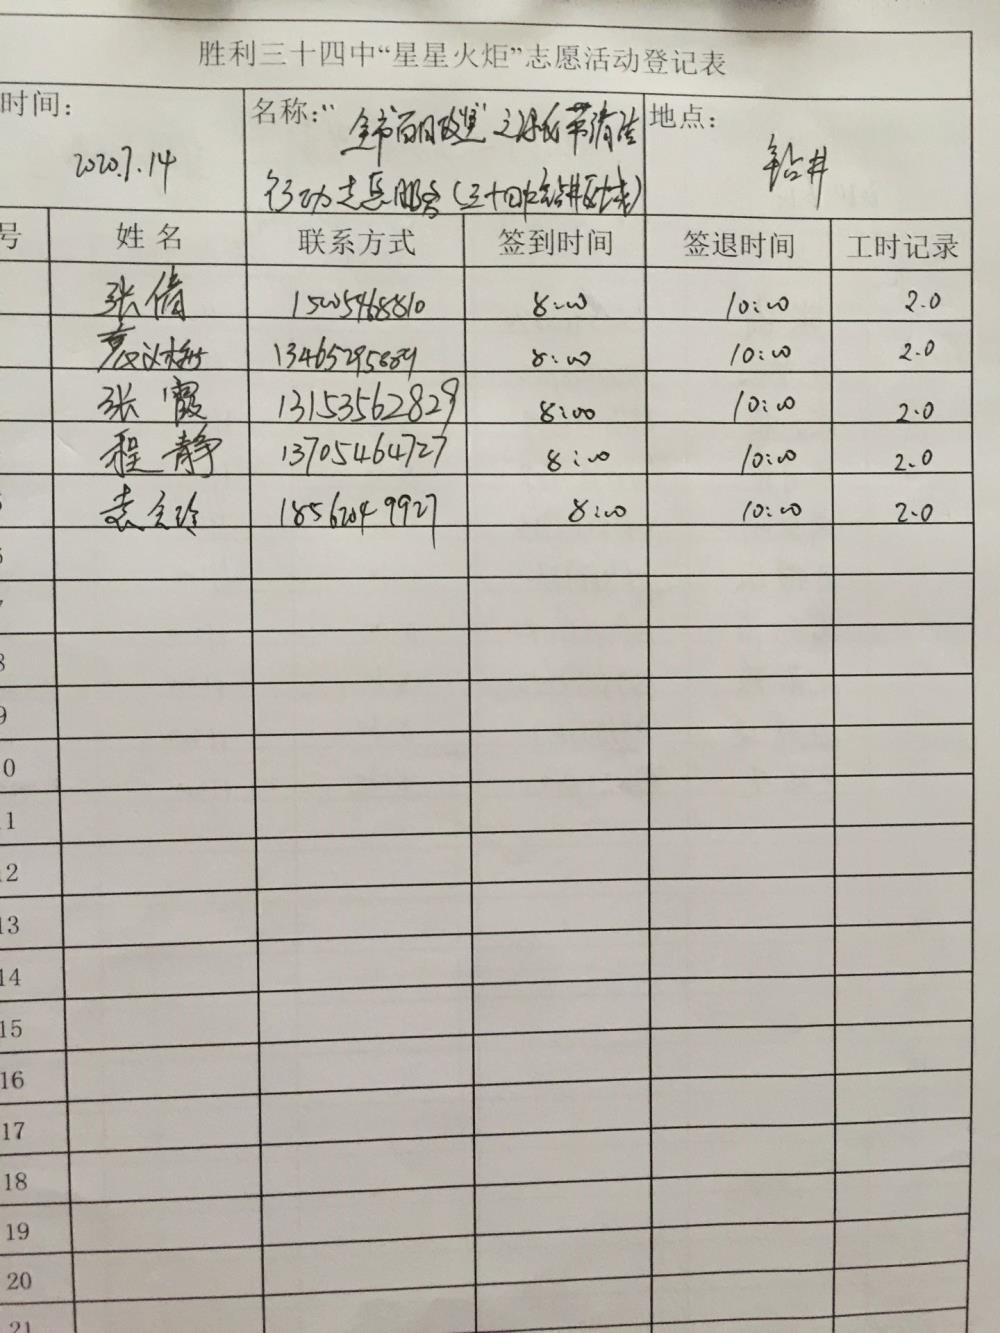 胜利三十四中“星星火炬”志愿活动登记表
时间: 名称: “全市百日攻坚”之绿化带清洁 地点:
2020.7.14 行动志愿服务(三十四中钻井 钻井
号 姓 名 联系方式 签到时间 签退时间 工时记录
张倩 15005468810 8:00 10:00 2.0
8:00 10:00 2.0
张霞 13153562829 8:00 10:00 2.0
程静 13705464727 8:00 10:00 2.0
袁 玲 18562049927 8:00 10:00 2.0
8
9
0
1
12
13
14
15
16
17
18
19
20
21